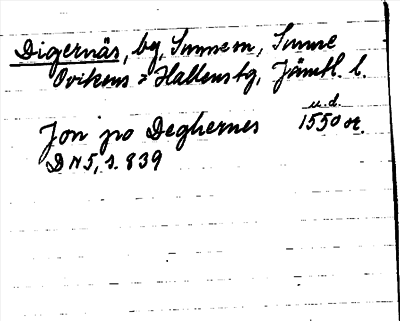 Digernäs, by, Sunne sn, Sunne
Ovikens o Hallens tg, Jämtl. l.
u.d.
Jon po Deghernes 1550 or.
DN 5, s. 839